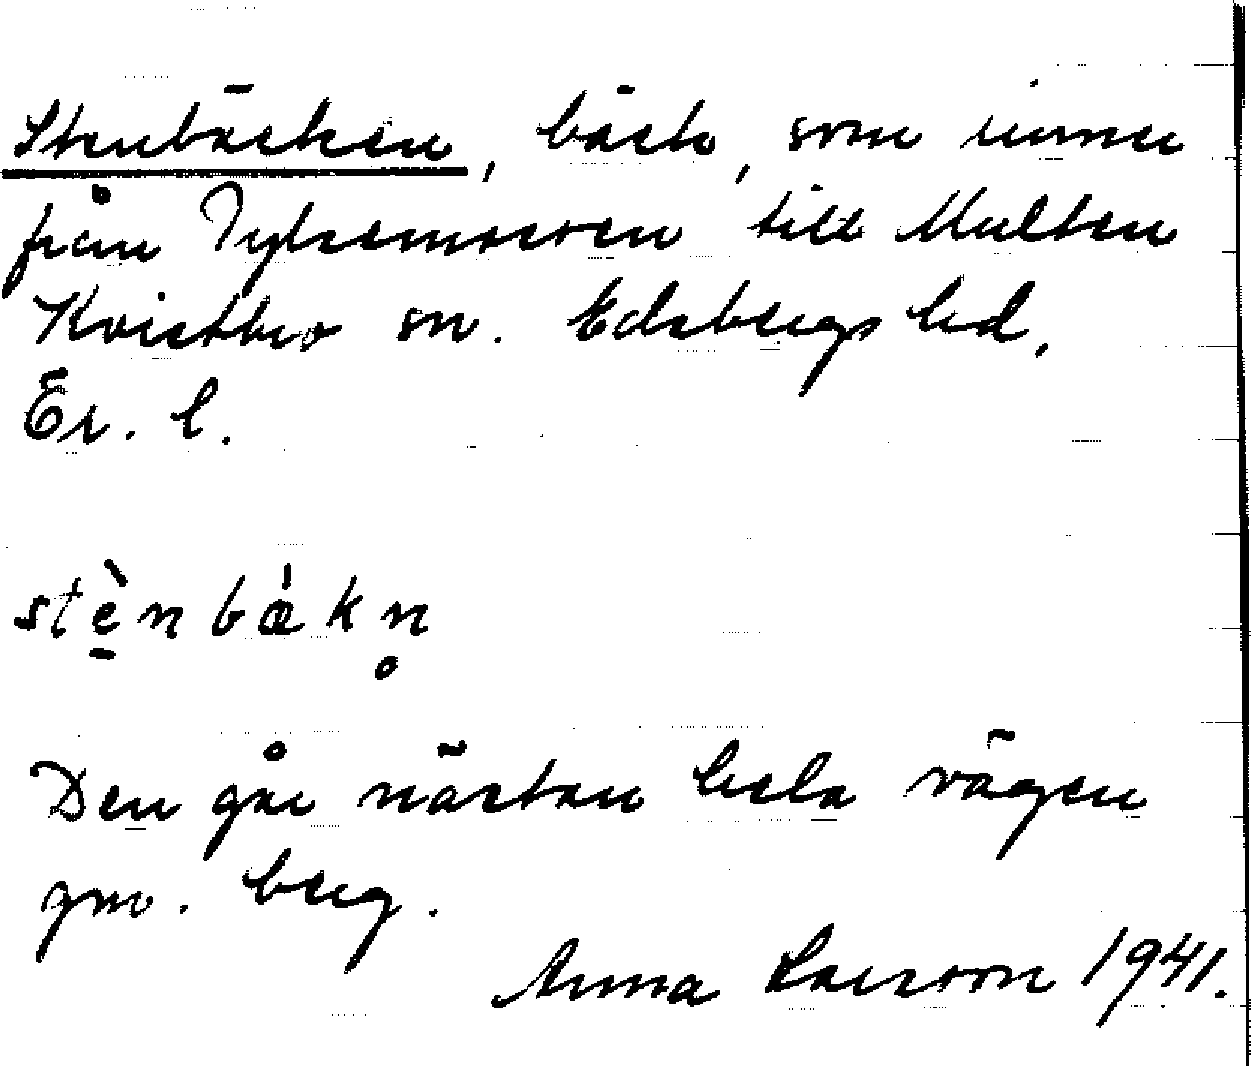 Stenbäcken, bäck, som rinner
från Tykesmossen till Multen
Kvistbro sn. Edsbergs hd.
Er. l.
stè̠nbæ̀kn̥
Den går nästan hela vägen
gm. berg.
Anna Larsson 1941.